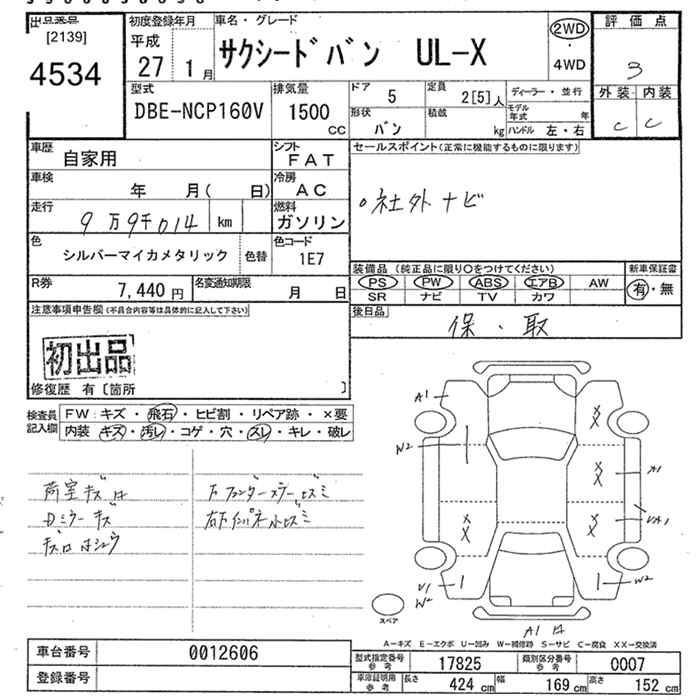 出品番号 初度登録年月 車名・グレード 2WD 評価点
[2139] 平成 サクシードバン UL-X ・ 3
4534 27 1月 4WD
型式 排気量 ドア 5 定員 2[5]人 ディーラー・並行 外装 内装
DBE-NCP160V 1500 CC 形状 バン 積載 kg モデル年式 年 C C
ハンドル 左・右
車歴 自家用 シフト FAT セールスポイント(正常に機能するものに限ります)
車検 年 月( 日) 冷房 AC
走行 9万9千014 km 燃料 ガソリン 社外ナビ
色 シルバーマイカメタリック 色替 色コード 1E7
装備品(純正品に限り○をつけてください) 新車保証書
R券 7,440円 名変通知期限 月 日 PS PW ABS エアB AW 有・無
SR ナビ TV カワ
注意事項申告欄(不具合内容等は具体的に記入して下さい) 後日品
保・取
初出品
修復歴 有〔箇所 〕
検査員記入欄 FW:キズ・飛石・ヒビ割・リペア跡・×要
内装 キズ・汚レ・コゲ・穴・スレ・キレ・破レ
A1
W2
XX
XX
A1
XX
XX
UA1
U1
W2
W2
A1
荷室キズ
Dミラーキズ
スペア
A-キズ E-エクボ U-凹み W-補修跡 S-サビ C-腐食 XX-交換済
車台番号 0012606 型式指定番号 参考 17825 類別区分番号 参考 0007
登録番号 車庫証明用 参考 長さ 424 cm 幅 169 cm 高さ 152 cm